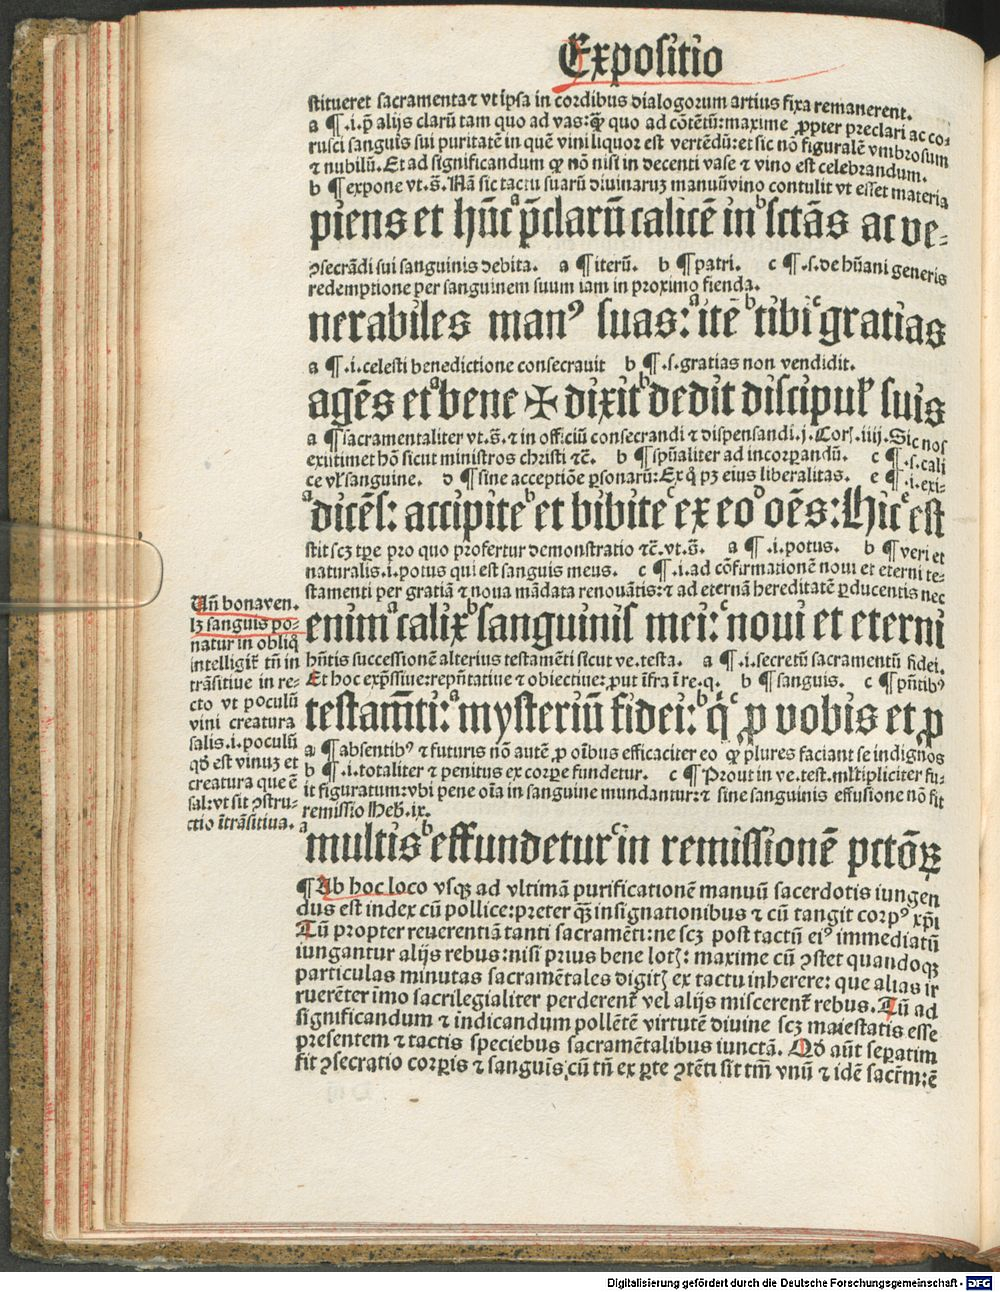 Expositio
stitueret sacramenta ⁊ vt ipsa in cordibus dialogorum artius fixa remanerent.
a ¶ .i. p̄ alijs clarū tam quo ad vas: qȝ̄ quo ad cōtētū: maxime ꝓpter preclari ac co-
rusci sanguis sui puritatē in quē vini liquor est vertēdū: et sic nō figuralē vmbrosum
⁊ nubilū. Et ad significandum ꝙ nō nisi in decenti vase ⁊ vino est celebrandum.
b ¶ expone vt .s̄. Nā sic tactu suarū diuinaruȝ manuū vino contulit vt esset materia
piens et hūc a p̄clarū calicē in b sctās ac ve-
ꝯsecrādi sui sanguinis debita. a ¶ iterū. b ¶ patri. c ¶ .s. de hūani generis
redemptione per sanguinem suum iam in proximo fienda.
nerabiles manꝰ suas: a itē b tibi c gratias
a ¶ .i. celesti benedictione consecrauit b ¶ .s. gratias non vendidit.
agēs et a bene ✠ dixit b dedit discipul̉ suis
a ¶ sacramentaliter vt .s̄. ⁊ in officiū consecrandi ⁊ dispensandi .j. Corꝭ .iiij. Sic nos
existimet hō sicut ministros christi ⁊c̄. b ¶ sp̄ualiter ad incorꝑandū. c ¶ .s. cali
ce vl̉ sanguine. d ¶ sine acceptiōe ꝑsonarū: Ex q̊ pȝ eius liberalitas. e ¶ .i. exi-
a dicēs: accipite b et bibite c ex eo d oēs: Hic e est
stit scȝ tꝑe pro quo profertur demonstratio ⁊c̄. vt .s̄. a ¶ .i. potus. b ¶ veri et
naturalis .i. potus qui est sanguis meus. c ¶ .i. ad cōfirmationē noui et eterni te-
stamenti per gratiā ⁊ noua mādata renouātis: ⁊ ad eternā hereditatē ꝑducentis nec
enim a calix b sanguinis mei: c noui et eterni
hn̄tis successionē alterius testamēti sicut ve. testa. a ¶ .i. secretū sacramentū fidei.
Et hoc exp̄ssiue: repn̄tatiue ⁊ obiectiue: ꝓut īfra ī re. q. b ¶ sanguis. c ¶ pn̄tibꝰ
testam̄ti: a mysteriū fidei: b q̇ c ꝓ vobis et ꝓ
a ¶ absentibꝰ ⁊ futuris nō autē ꝓ oībus efficaciter eo ꝙ plures faciant se indignos
b ¶ .i. totaliter ⁊ penitus ex corꝑe fundetur. c ¶ Prout in ve. test. ml̉tipliciter fu-
it figuratum: vbi pene oīa in sanguine mundantur: ⁊ sine sanguinis effusione nō fit
remissio Heb̄. ix.
a multis b effundetur c in remissionē pctōꝝ
Un̄ bonauen.
lȝ sanguis po-
natur in obliq̊
intelligit̉ tn̄ in
trāsitiue in re-
cto vt poculū
vini creatura
salis .i. poculū
qd̉ est vinuȝ et
creatura que ē
sal: vt sit ꝯstru-
ctio ītrāsitiua.
¶ Ab hoc loco vsqȝ ad vltimā purificationē manuū sacerdotis iungen
dus est index cū pollice: preter qȝ̄ in signationibus ⁊ cū tangit corpꝰ xp̄i
Tū propter reuerentiā tanti sacramēti: ne scȝ post tactū eiꝰ immediatū
iungantur alijs rebus: nisi prius bene lotꝭ: maxime cū ꝯstet quandoqȝ
particulas minutas sacramētales digitꝭ ex tactu inherere: que alias ir
ruerēter īmo sacrilegialiter perderent̉ vel alijs miscerent̉ rebus. Tū ad
significandum ⁊ indicandum pollētē virtutē diuine scȝ maiestatis esse
presentem ⁊ tactis speciebus sacramētalibus iunctā. Qd̉ aūt seꝑatim
fit ꝯsecratio corꝑis ⁊ sanguis, cū tn̄ ex ꝑte ꝯtēti sit tm̄ vnū ⁊ idē sacr̄m: ē
Digitalisierung gefördert durch die Deutsche Forschungsgemeinschaft - DFG